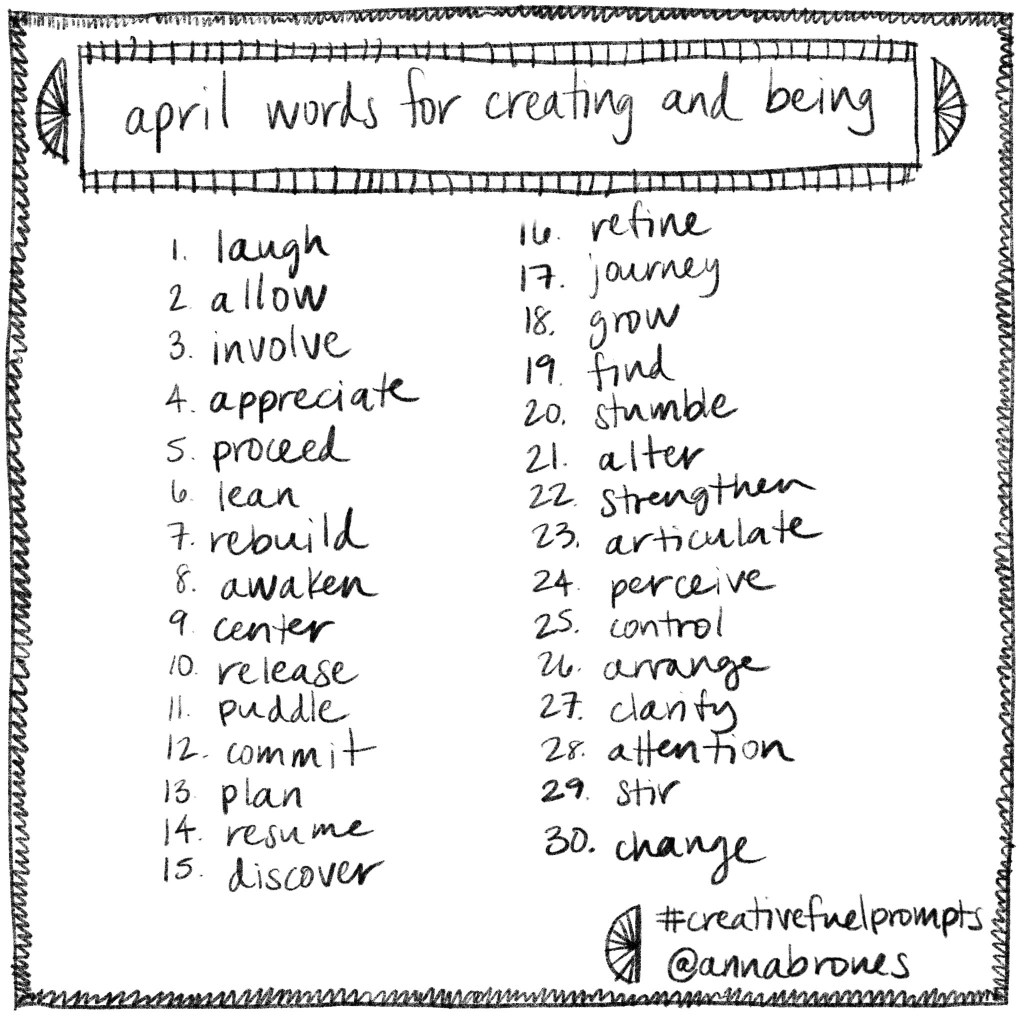 april words for creating and being
1. laugh
2. allow
3. involve
4. appreciate
5. proceed
6. lean
7. rebuild
8. awaken
9. center
10. release
11. puddle
12. commit
13. plan
14. resume
15. discover
16. refine
17. journey
18. grow
19. find
20. stumble
21. alter
22. strengthen
23. articulate
24. perceive
25. control
26. arrange
27. clarify
28. attention
29. stir
30. change
#creativefuelprompts
@annabrones